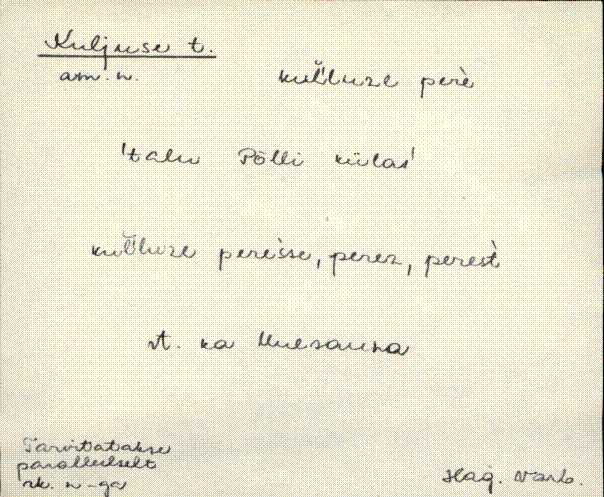 Kuljuse t.
am. n. kul̆luze perè
'talu Põlli külas'
kul̆luze peresse, perez, perest
vt. ka
Tarvitatakse
paralleelselt
rk. n-ga
Hag. Varb.